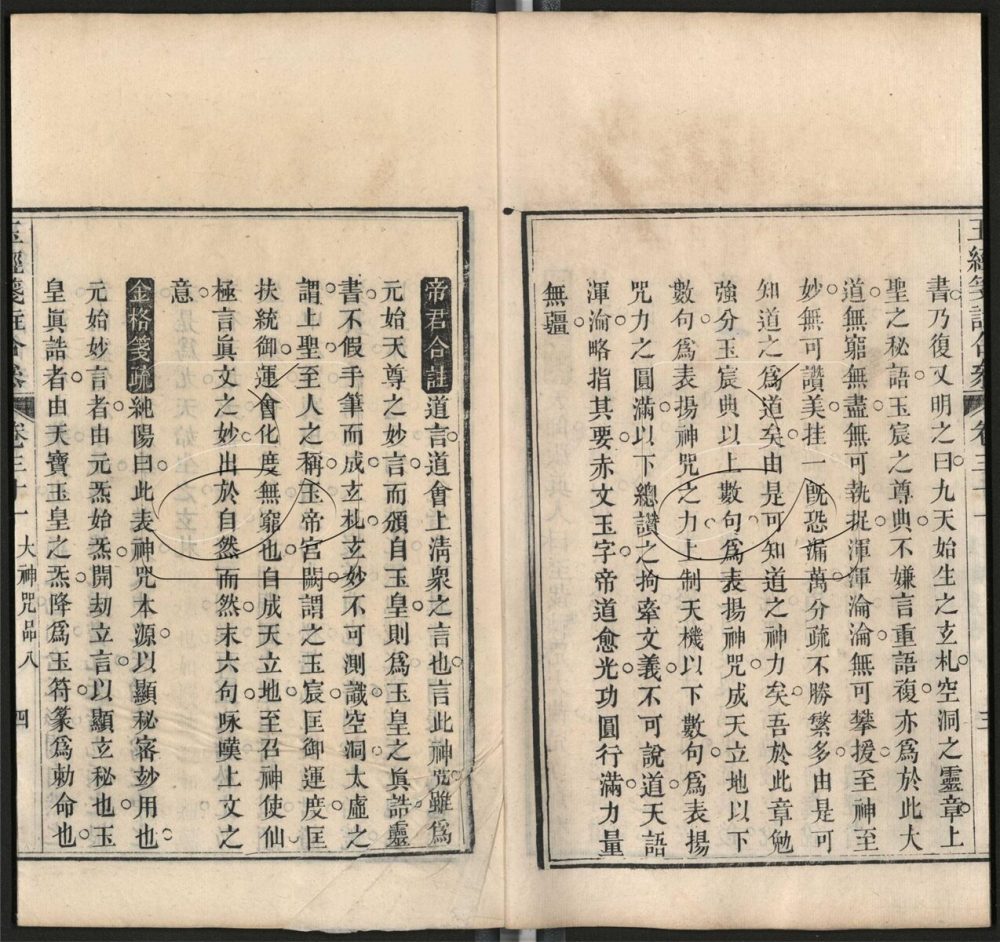 書乃復又明之曰九天始生之玄札空洞之靈章上
聖之秘語玉宸之尊典不嫌言重語複亦爲於此大
道無窮無盡無可執捉渾渾淪淪無可攀援至神至
妙無可讚美挂一旣恐漏萬分疏不勝繁多由是可
知道之爲道矣由是可知道之神力矣吾於此章勉
強分玉宸典以上數句爲表揚神咒成天立地以下
數句爲表揚神咒之力上制天機以下數句爲表揚
咒力之圓滿以下總讚之拘牽文義不可說道天語
渾淪略指其要赤文玉字帝道愈光功圓行滿力量
無疆
帝君合註道言道會上淸衆之言也言此神咒雖爲
元始天尊之妙言而頒自玉皇則爲玉皇之眞誥靈
書不假手筆而成玄札玄妙不可測識空洞太虛之
謂上聖至人之稱玉帝宮闕謂之玉宸匡御運度匡
扶統御運會化度無窮也自成天立地至召神使仙
極言眞文之妙出於自然而然末六句咏嘆上文之
意
金格箋疏純陽曰此表神咒本源以顯秘密玅用也
元始妙言者由元炁始炁開劫立言以顯玄秘也玉
皇眞誥者由天寶玉皇之炁降爲玉符篆爲勅命也
玉經箋註合叅 卷三十一 大神咒品八 四